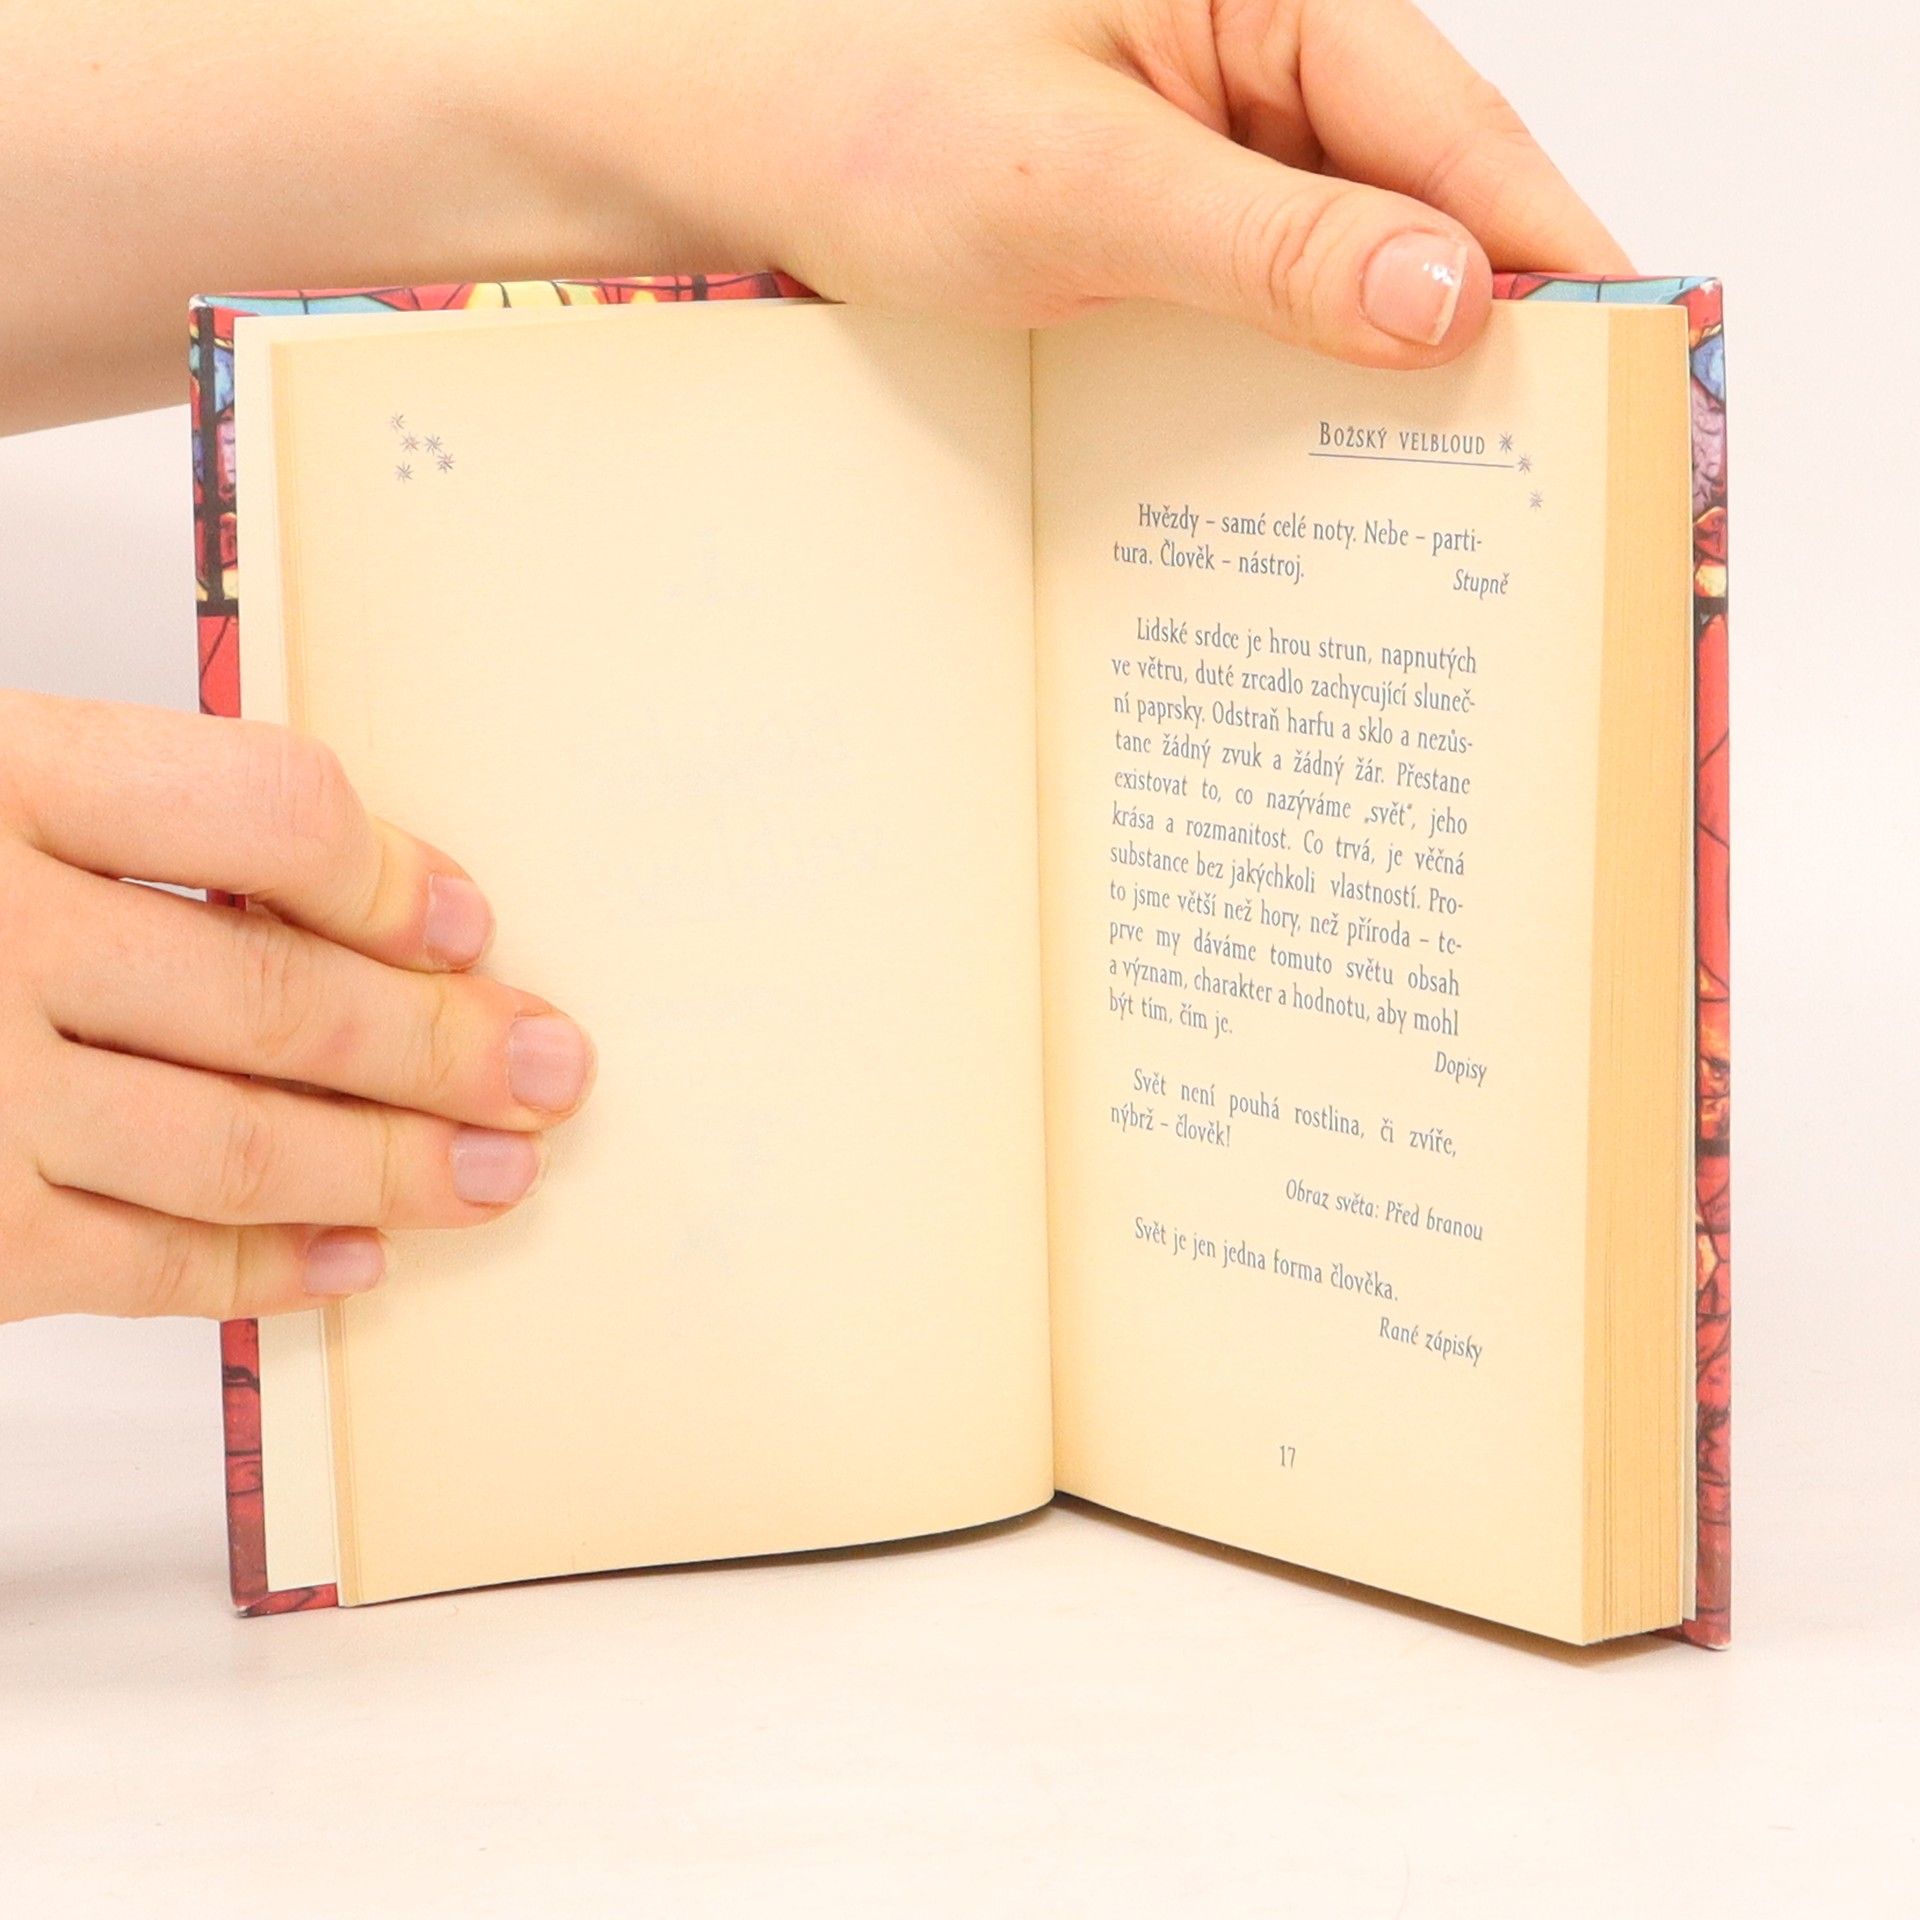 BOŽSKÝ VELBLOUD
Hvězdy – samé celé noty. Nebe – parti-
tura. Člověk – nástroj.
Stupně
Lidské srdce je hrou strun, napnutých
ve větru, duté zrcadlo zachycující sluneč-
ní paprsky. Odstraň harfu a sklo a nezůs-
tane žádný zvuk a žádný žár. Přestane
existovat to, co nazýváme „svět“, jeho
krása a rozmanitost. Co trvá, je věčná
substance bez jakýchkoli vlastností. Pro-
to jsme větší než hory, než příroda – te-
prve my dáváme tomuto světu obsah
a význam, charakter a hodnotu, aby mohl
být tím, čím je.
Dopisy
Svět není pouhá rostlina, či zvíře,
nýbrž – člověk!
Obraz světa: Před branou
Svět je jen jedna forma člověka.
Rané zápisky
17